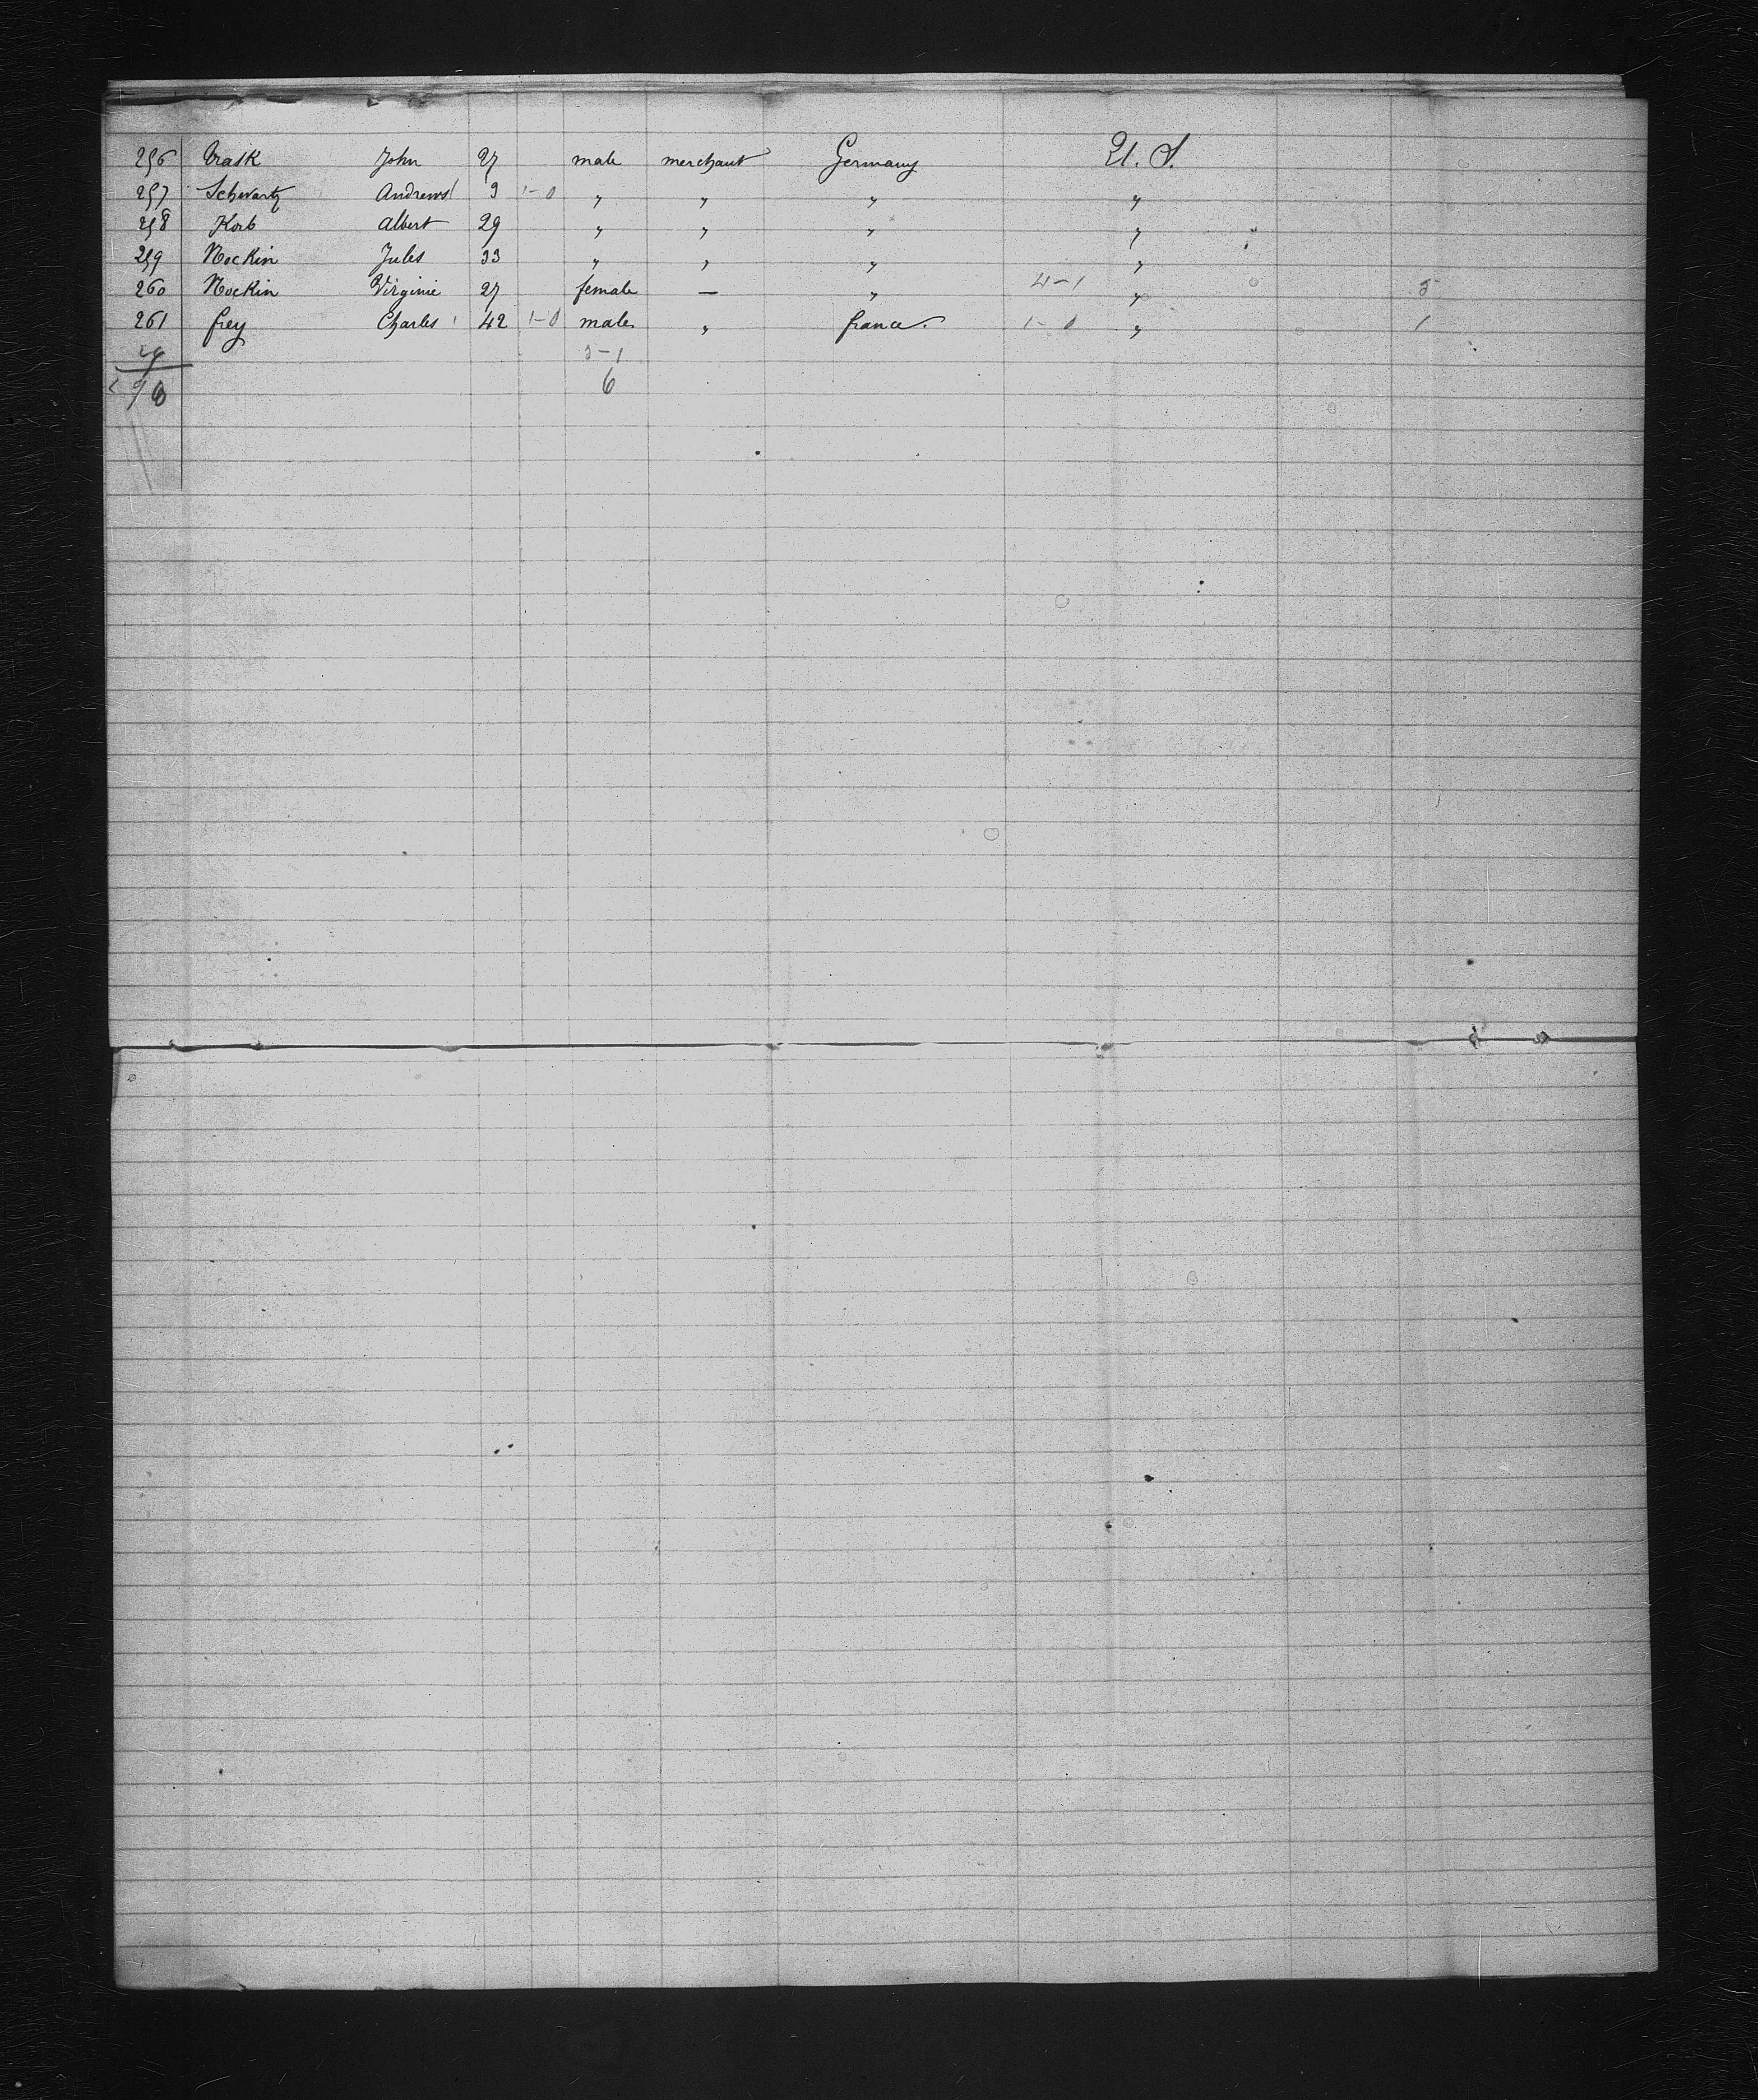 256 Trask John 27 male merchant Germany U. S.
257 Schwartz Andrews 9 1-0 " " " "
258 Korb Albert 29 " " " "
259 Nockin Jules 33 " " " "
260 Nockin Virginie 27 female — " 4-1 " 5
261 frey Charles 42 1-0 male " france. 1-0 " 1
5-1
6